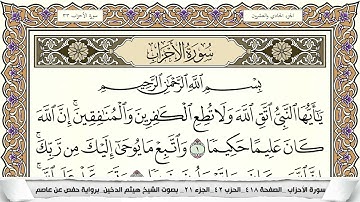 الجزء الحادي والعشرين
سورة الأحزاب ٣٣
سُورَةُ الأَحْزَابِ
بِسْمِ اللَّهِ الرَّحْمَٰنِ الرَّحِيمِ
يَٰٓأَيُّهَا النَّبِيُّ اتَّقِ اللَّهَ وَلَا تُطِعِ الْكَٰفِرِينَ وَالْمُنَٰفِقِينَ ۗ إِنَّ اللَّهَ
كَانَ عَلِيمًا حَكِيمًا ١ وَاتَّبِعْ مَا يُوحَىٰٓ إِلَيْكَ مِن رَّبِّكَ ۚ
سورة الأحزاب _ الصفحة ٤١٨ _ الحزب ٤٢ _ الجزء ٢١ _ بصوت الشيخ هيثم الدخين _ برواية حفص عن عاصم